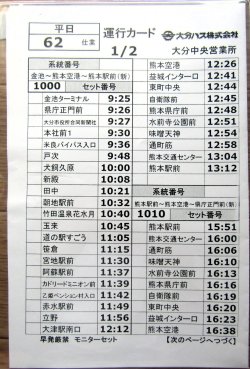 平日
62 仕業
運行カード
1/2
大分バス株式会社
大分中央営業所
系統番号
金池〜熊本空港〜熊本駅前(新)
1000 セット番号
金池ターミナル 9:25
県庁正門前 9:26
大分市役所合同新聞社 9:27
本社前1 9:30
米良バイパス入口 9:36
戸次 9:48
犬飼久原 10:00
新殿 10:08
田中 10:21
朝地駅前 10:32
竹田温泉花水月 10:40
玉来 10:45
道の駅すごう 11:05
笹倉 11:15
宮地駅前 11:30
阿蘇駅前 11:37
カドリードミニオン前 11:39
乙姫ペンション村入口 11:42
赤水駅前 11:49
立野 11:56
大津駅南口 12:12
熊本空港 12:26
益城インター口 12:41
東町中央 12:44
自衛隊前 12:45
熊本県庁前 12:48
水前寺公園前 12:51
味噌天神 12:54
通町筋 12:58
熊本交通センター 13:04
熊本駅前 13:12
系統番号
熊本駅前〜熊本空港〜県庁正門前(新)
1010 セット番号
熊本駅前 15:51
熊本交通センター 16:00
通町筋 16:06
味噌天神 16:10
水前寺公園前 16:13
熊本県庁前 16:16
自衛隊前 16:19
東町中央 16:20
益城インター口 16:23
熊本空港 16:38
早発厳禁 モニターセット
【次のページへつづく】